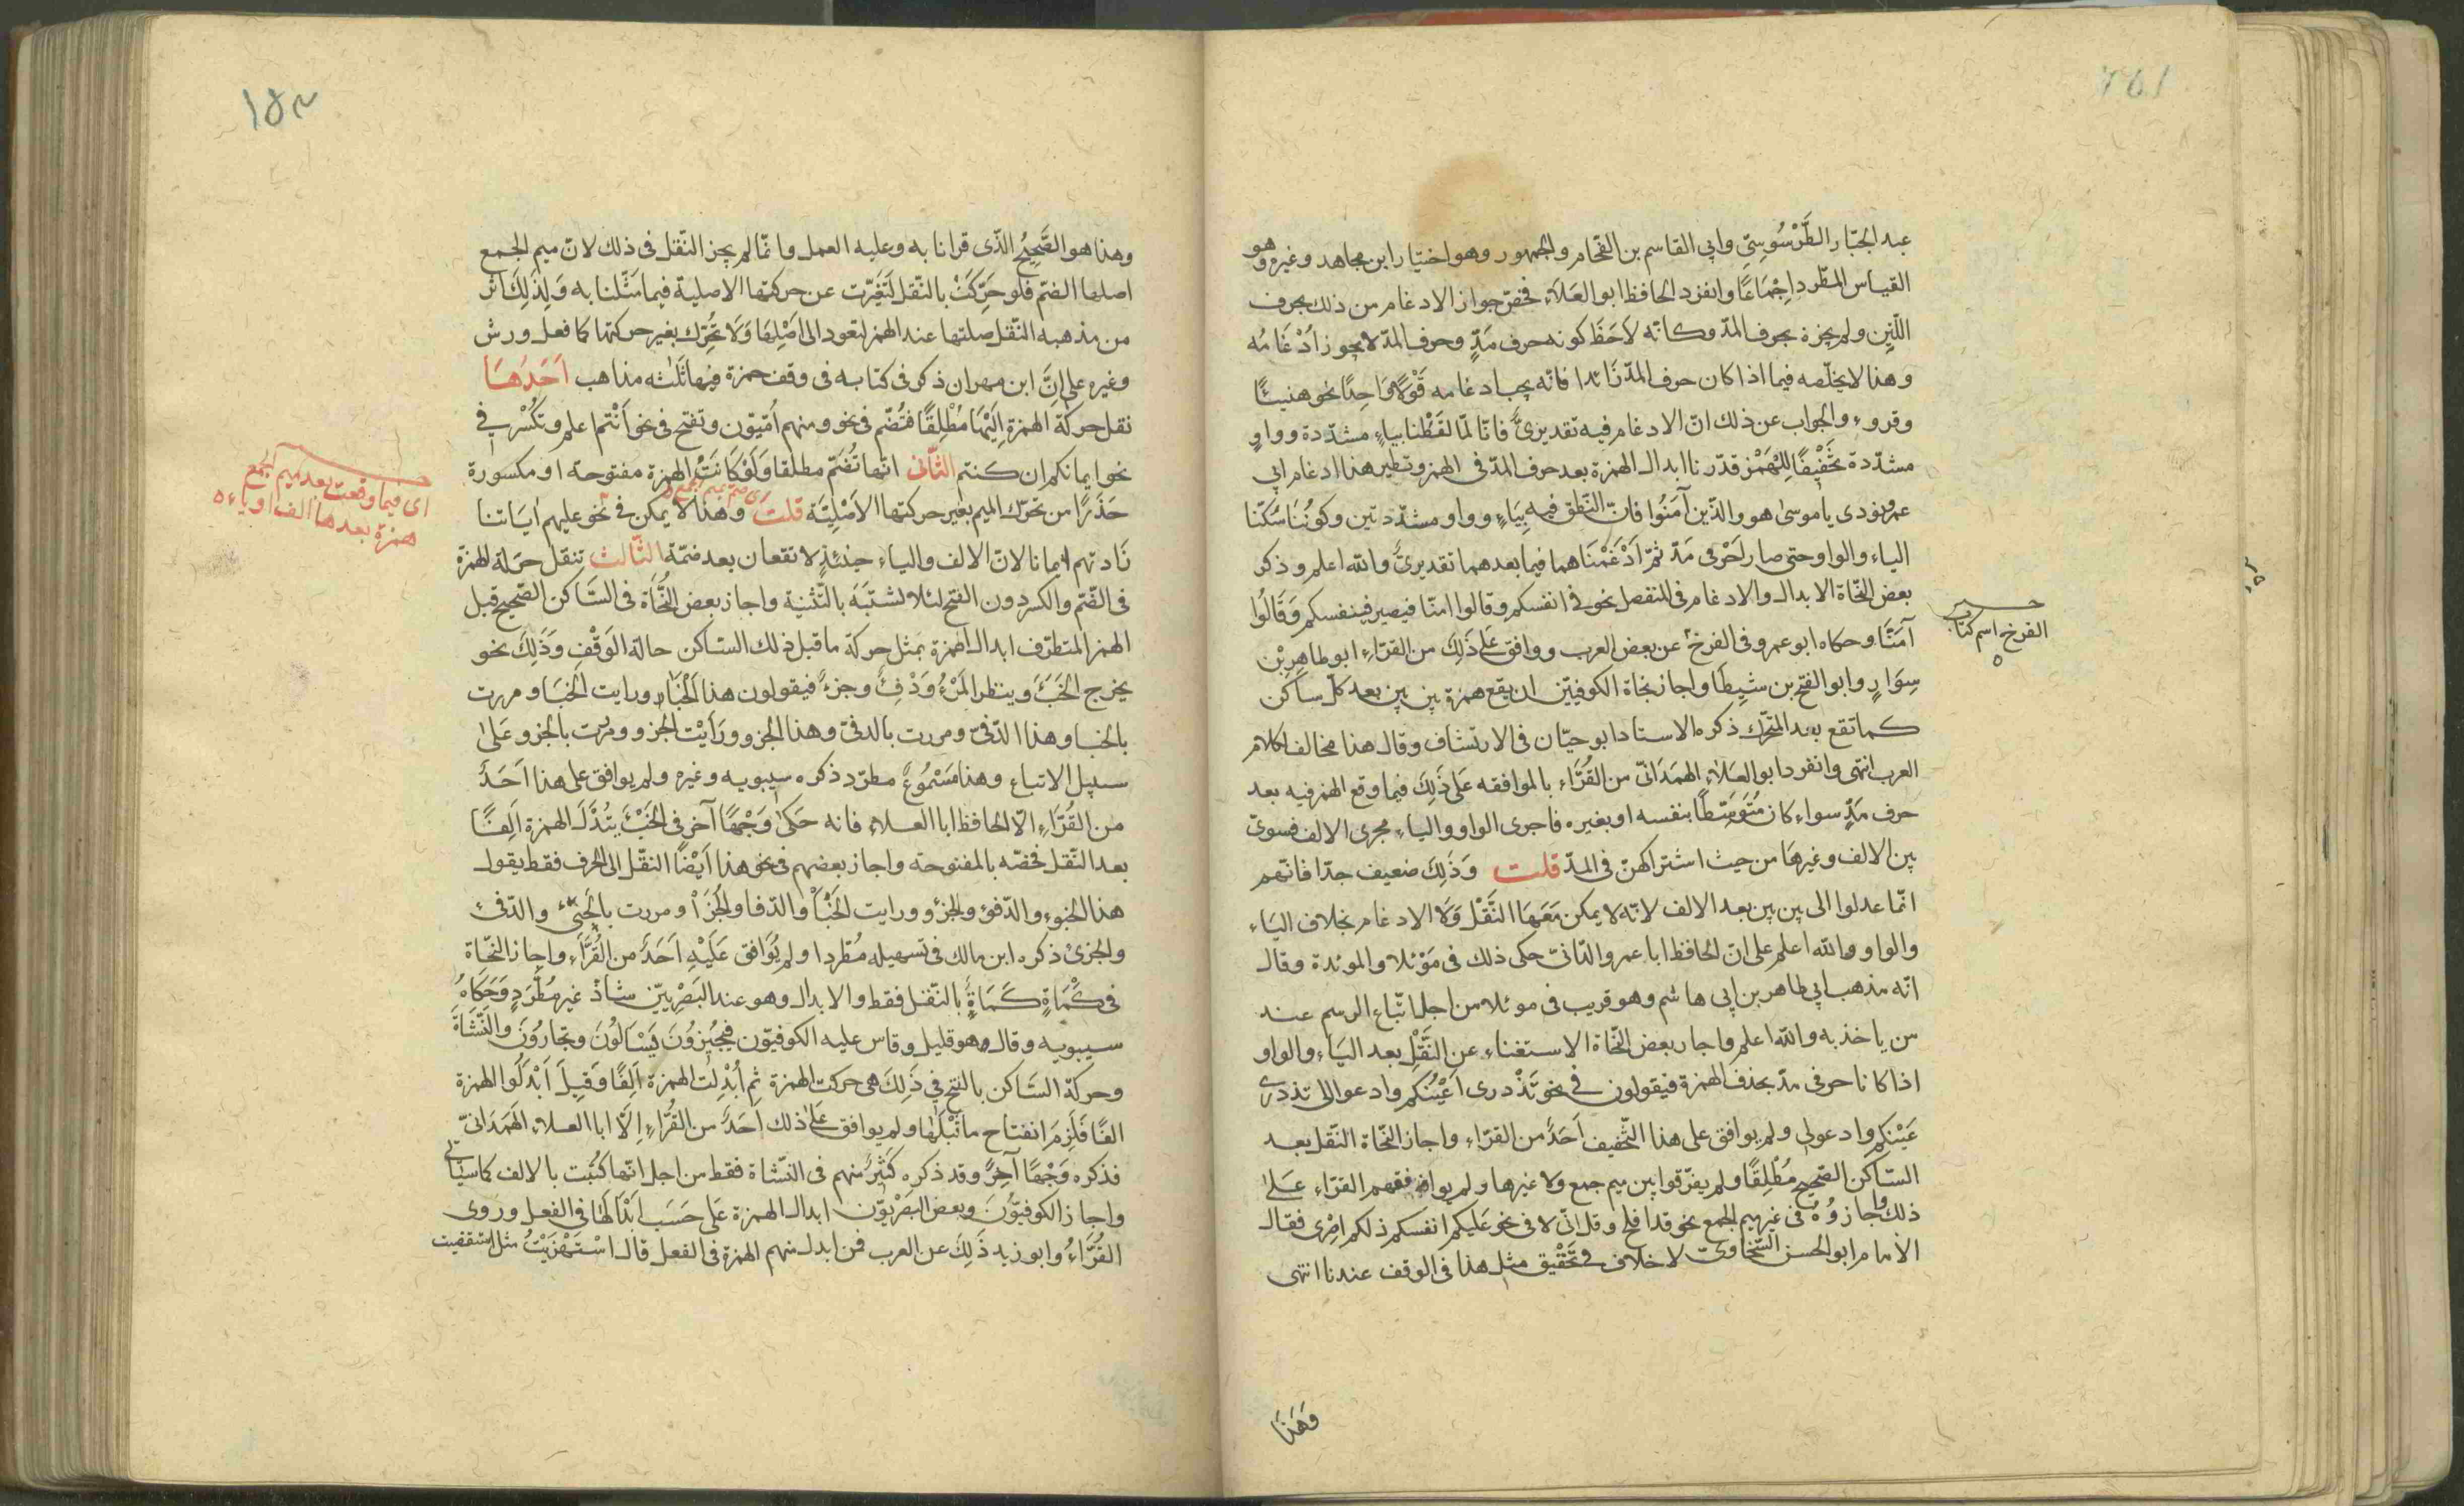 عبد الجبّار الطَّرْسُوسِيّ وابي القاسم بن الفحّام والجمهور وهو اختيار ابن مجاهد وغيره وهو
القياس المطّرد اِجْمَاعًا وانفرد الحافظ ابو العَلَاءِ فخصّ جواز الادغام من ذلك بحرف
اللّين ولم يجزه بحرف المدّ وكانّه لَاحَظَ كونه حرف مَدٍّ وحرف المدّ لا يجوز اَدْغَامُه
وهذا لا يخلّصه فيما اذا كان حرف المدّ زَائدا فانّه يجب ادغامه قَوْلًا وَاحِدًا نحو هنيئًا
وقروء والجواب عن ذلك انّ الادغام فيه تقديريٌّ فانّا لمّا لفَظْنا بياءٍ مشدّدة وواوٍ
مشدّدة تَخْفِيفًا لِلْهَمْز قدّرنا ابدال الهمزة بعد حرف المدّ في الهمز ونظير هذا ادغام ابي
عمرو نودى يا موسىٰ هو والذين آمَنُوا فانّ النّطق فيه بِيَاءٍ وواو مشدّدتين وكونُنا سَكّنا
الياء والواو حتى صارا حَرْفى مَدّ ثمّ اَدْغَمْنَاهما فيما بعدهما تقديريٌّ والله اعلم وذكر
بعض النّحاة الابدال والادغام في المنفصل نحو في انفسكم وقالوا امنّا فيصير فينفسكم وَقَالُوا
آمَنَّا وحكاه ابو عمرو في الفرخ عن بعض العرب ووافق عَلى ذَلِكَ من القرّاءِ ابو طاهِرِ بْن
سِوَارٍ وابو الفتح بن شيِطَا واجاز نحاة الكوفيّين ان يقع همزة بين بين بعد كلّ ساكن
كما تقع بعد المتحرّك ذكره الاستاد ابو حيّان في الارتشاف وقال هذا مخالف لكلام
العرب انتهى وانفرد ابو العَلَاءِ الهمَدَانيّ من القُرَّاء بالموافقه عَلى ذَلِكَ فيما وقع الهمز فيه بعد
حرف مَدٍّ سواء كان مُتَوَسِّطًا بنفسه او بغيره فاجرى الواو والياء مجرى الالف فسوىّ
بين الالف وغيرهَا من حيث اشتراكهنّ في المدّ قلت وَذَلِكَ ضعيف جدّا فانّهم
انّما عدلوا الى بين بين بعد الالف لانّه لا يمكن مَعَهَا النَّقْل وَلَا الادغام بخلاف اليَاء
والواو والله اعلم على انّ الحافظ ابا عمرو الدّانىّ حكى ذلك في مَوْئلا والموئدة وقال
انّه مذهب ابي طاهر بن ابي هاشم وهو قريب في موئلا من اجل اتّباع الرسم عند
من ياخذ به والله اعلم واجاز بعض النّحاة الاستغناء عن النَّقْلِ بعد اليَاء والواو
اذا كانا حرفى مدّ بحذف الهمزة فيقولون في نحو تَذْدرى اَعْيُنُكم وادعوا الى تذدرى
عَيْنكم وادعولى ولم يوافق على هذا التّخفيف اَحَدٌ من القرّاء واجاز النّحاة النّقل بعد
السّاكن الصّحيح مُطْلِقًا ولم يفرّقوا بين ميم جمع ولا غيرها ولم يوافقهم القرّاء عَلىٰ
ذلك واجازوُهُ في غير ميم الجمع نحو قد افلح وقل انّى لا في نحو عَليكم انفسكم ذلكم اِصْرِى فقال
الأمام ابو الحسن السَّخاوىّ لا خلاف في تَحْقِيق مثل هذا في الوقف عندنا انتهى
وَهَذَا
الفرخ اسم كتاب
١٥٣
وهذا هو الصَّحِيْحُ الذّى قرانا به وعليه العمل وانّما لم يجز النّقل في ذلك لانّ ميم الجمع
اصلها الضمّ فلو حَرِّكَتْ بالنّقل لَتَغَيَّرت عن حركتها الاصلية فيما مثّلنا به وَلِذَلِكَ آثر
من مذهبه النّقل صلتها عند الهمز لتعود الى اَصْلِهَا وَلَا تُحَرّك بغير حركتها كما فعل ورش
وغيره على انَّ ابن مهران ذكر في كتابه في وقف حمزة فيها ثَلٰثه مذاهب اَحَدُهَا
نقل حركة الهمزة اِلَيْهَا مُطْلِقًا فتُضّم في نحو ومنهم اُمّيّون وتفتح في نحو اَنْتم اعلم وتكْسُر في
نحو ايمانكم ان كنتم الثّانى انّها تُضَمّ مطلقا وَلَوْ كَانَتْ الهمزة مفتوحة او مكسورة
حَذَرًا من تحرّك الميم بغير حركتها الاَصْلِيّة قلت وهذا لا يمكن في نحو عليهم ايَاتنا
زَادتهم ايمانا لانّ الالف والياء حينئذٍ لا تقعان بعد ضمّة الثّالث تنقل حركة الهمزة
في الضّم والكسر دون الفتح لئلا تشتبَهَ بالتّثنية واجاز بعض النُّحَاة في السّاكن الصّحيح قبل
الهمز المتطرّف ابدال الهمزة بمثل حركة ما قبل ذلك السّاكن حالة الوَقْفِ وَذَلِكَ نحو
يخرج الخَبْءَ وينظر المَرْءُ وَدْفِءٌ وجزءٌ فيقولون هذا الخبَا ورايت الخبَا ومررت
بالخبا وهذا الدّفىّ ومررت بالدفىّ وهذا الجزو ورَاَيْت الجزو ومررت بالجزو عَلىٰ
سبيل الاتباع وهذا مَسْمُوعٌ مطرّد ذكره سيبويه وغيره ولم يوافق على هذا اَحَدٌ
من القُرّاءِ الّا الحافظ ابا العلاءِ فانه حَكىٰ وَجْهًا آخر في الخَبْءِ بتُدَّل الهمزة اَلِفًا
بعد النّقل فخصّه بالمفتوحة واجاز بعضهم في نحو هذا اَيْضًا النقّل الى الحرف فقط يقول
هذا الخبوء والدّفؤ والجزؤ ورايت الخَبَأَ والدّفا والجَزَاْ ومررت بالخَبِيء والدّفئ
والجزئ ذكره ابن مالك في تسهيله مُطّردا ولم يُوَافق عَلَيْهِ اَحَدٌ من القُرَّاء واجاز النّحاة
في كْمَاةٍ كَمَاةٍ بالنّقل فقط والابدال وهو عند البَصْرِيّين شاذّ غير مُطَّرَدٍ وَحَكَاهُ
سيبويه وقال وهو قليل وقاس عليه الكوفيّون فيُجِيْزُوْنَ يَسَالُونَ وتجارُوْنَ والنّشَاةَ
وحركة السّاكن بالفتح في ذَلِكَ هي حركت الهمزة ثم اُبْدِلت الهمزة اَلِفًا وَقِيلَ اَبْدَلُوا الهمزة
الفًا فَلَزِمَ انفتاح ما قَبْلَهَا ولم يوافق عَلىٰ ذلك اَحَدٌ من القُرَّاءِ اِلَّا ابا العلاء الهَمَدَانيّ
فذكره وَجْهًا آخِرَ وقد ذكره كَثِيرٌ منهم في النّشاة فقط من اجل انّها كُتبت بالالف كما سيَأتى
واجاز الكوفيّوْنَ وبعض البَصْرِيّون ابدال الهمزة عَلى حَسَب اَبْدَالهَا في الفعل وروى
القُرَّاءُ وابو زيد ذَلِكَ عن العرب فمن ابدل منهم الهمزة في الفعل قال اسْتَهْزَيْتُ مثل استقضيت
اى ضمّ ميم الجمع
اى فيما وقعت بعد ميم الجمع
همزة بعدها الف او ياء